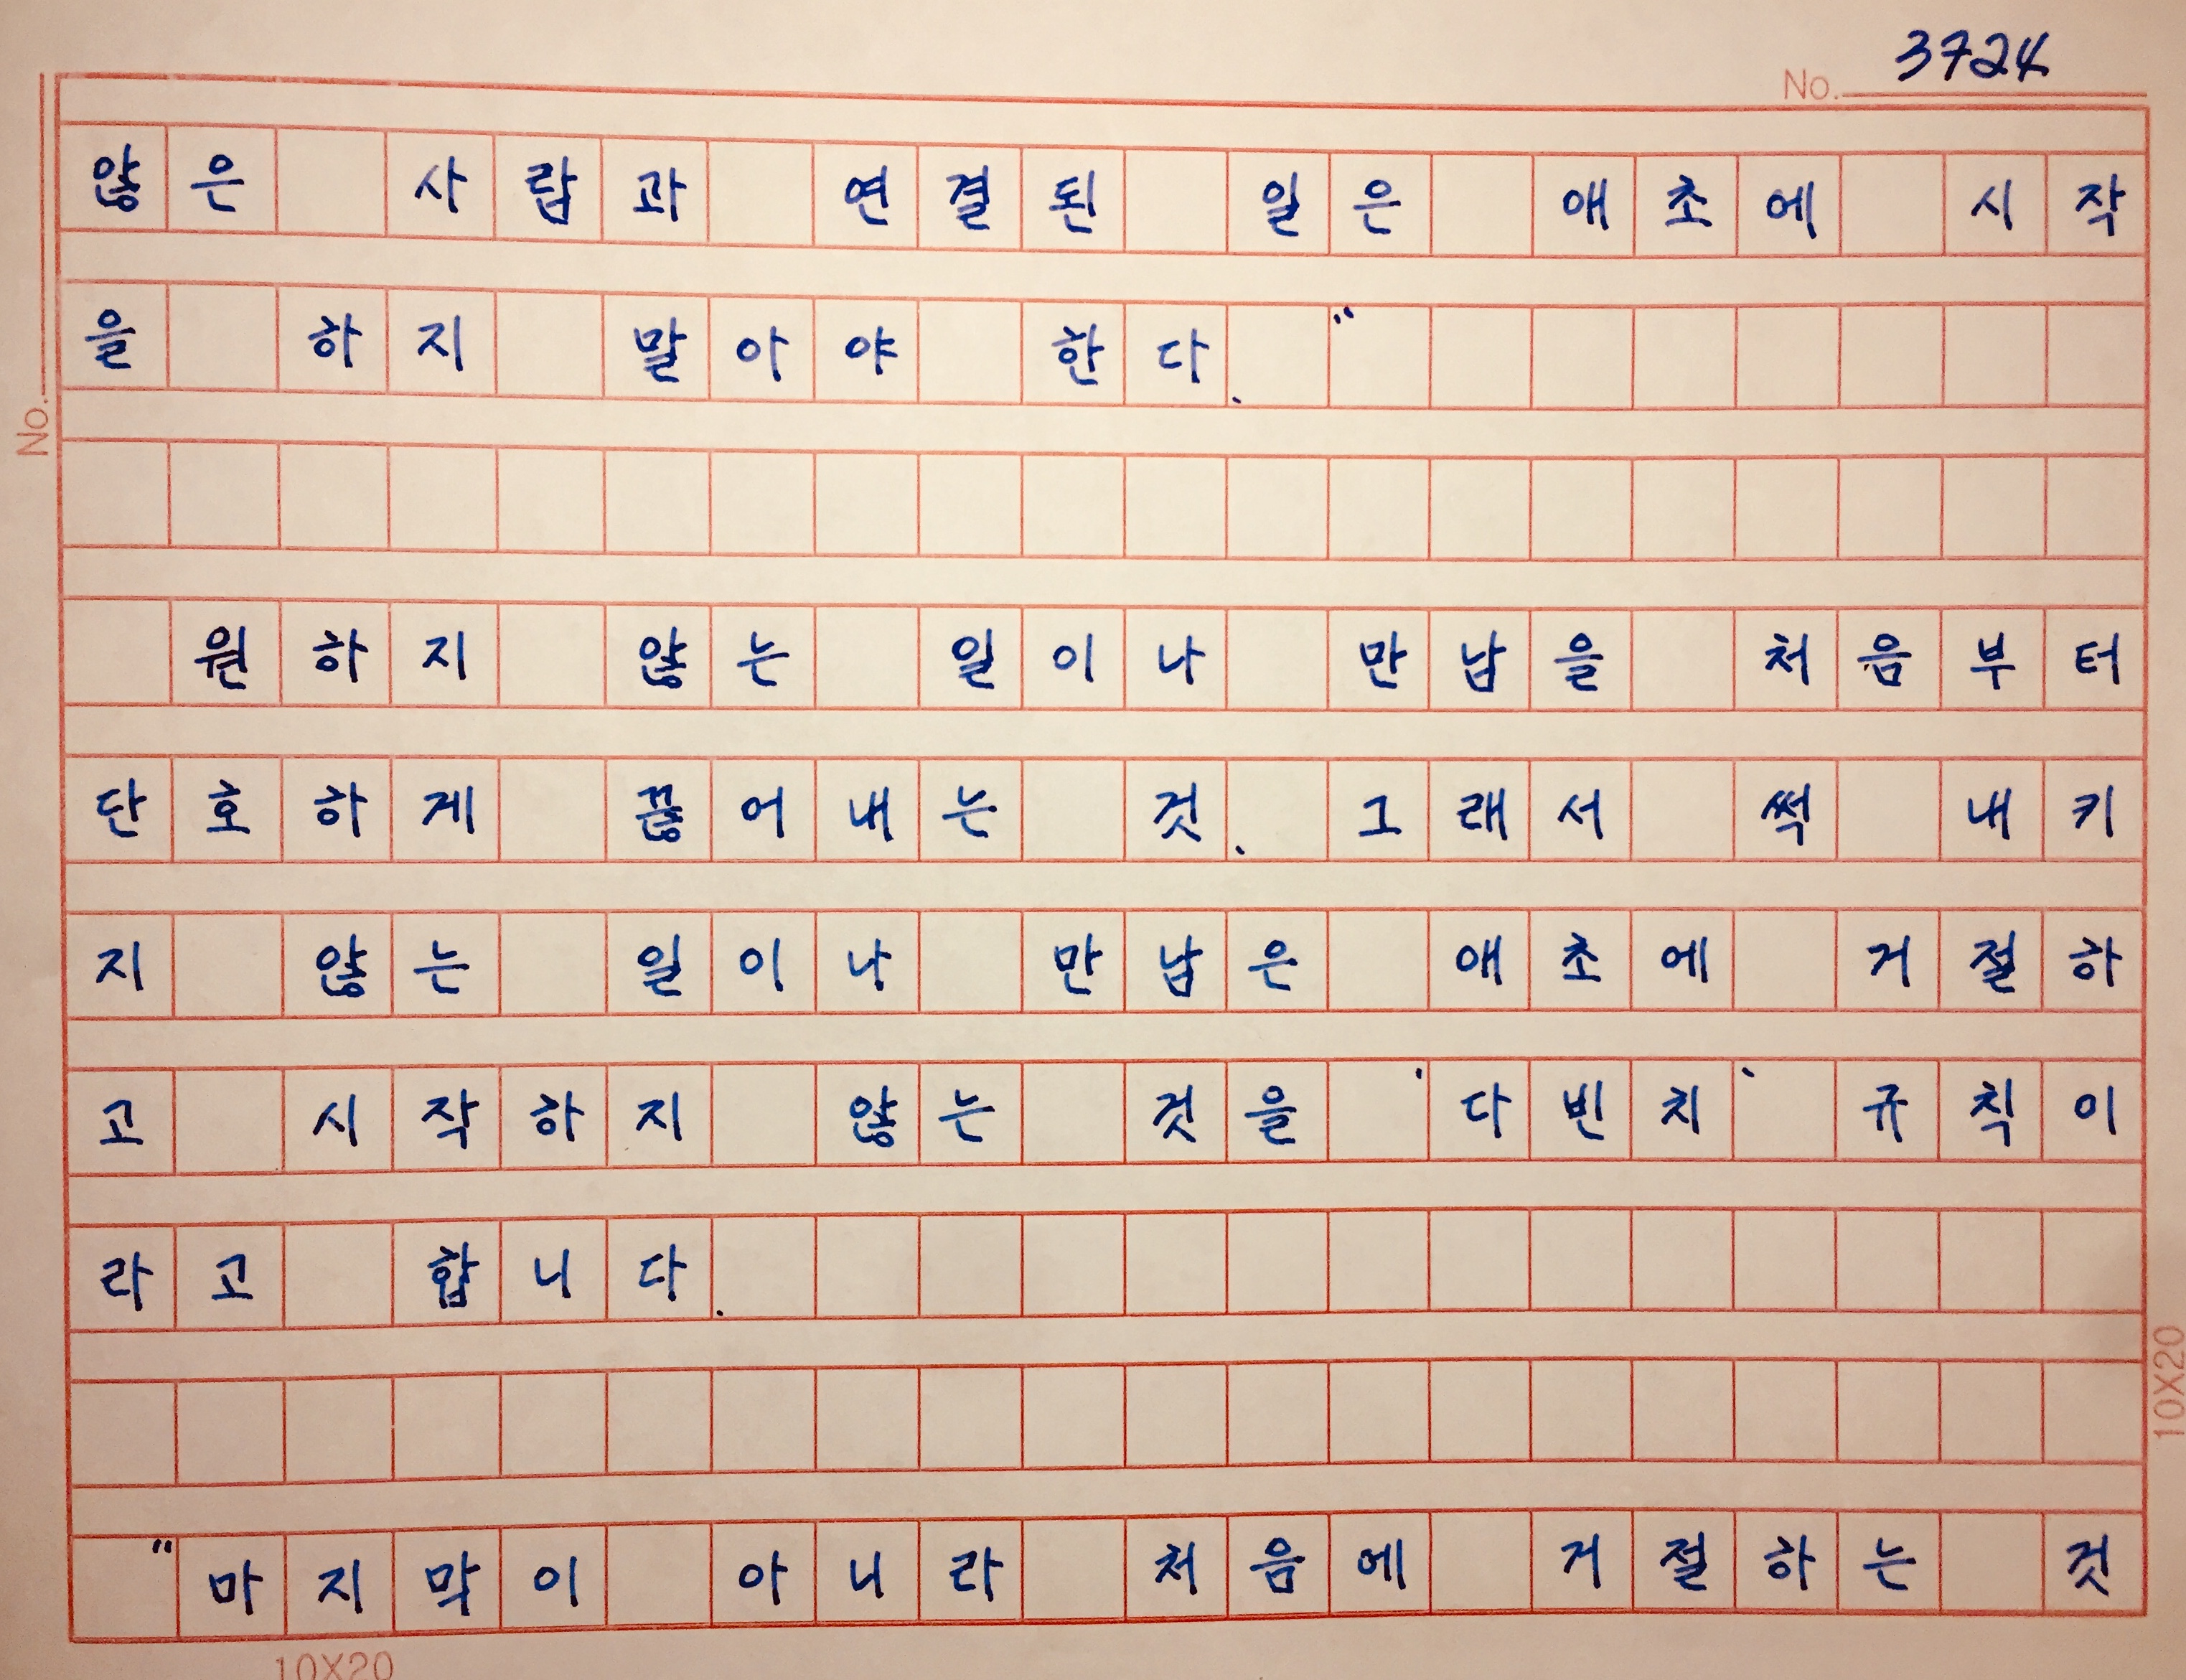 No. 3724
않은 사람과 연결된 일은 애초에 시작
을 하지 말아야 한다. "
원하지 않는 일이나 만남을 처음부터
단호하게 끊어내는 것. 그래서 썩 내키
지 않는 일이나 만남은 애초에 거절하
고 시작하지 않는 것을 '다빈치' 규칙이
라고 합니다.
"마지막이 아니라 처음에 거절하는 것
No.
10X20
10X20